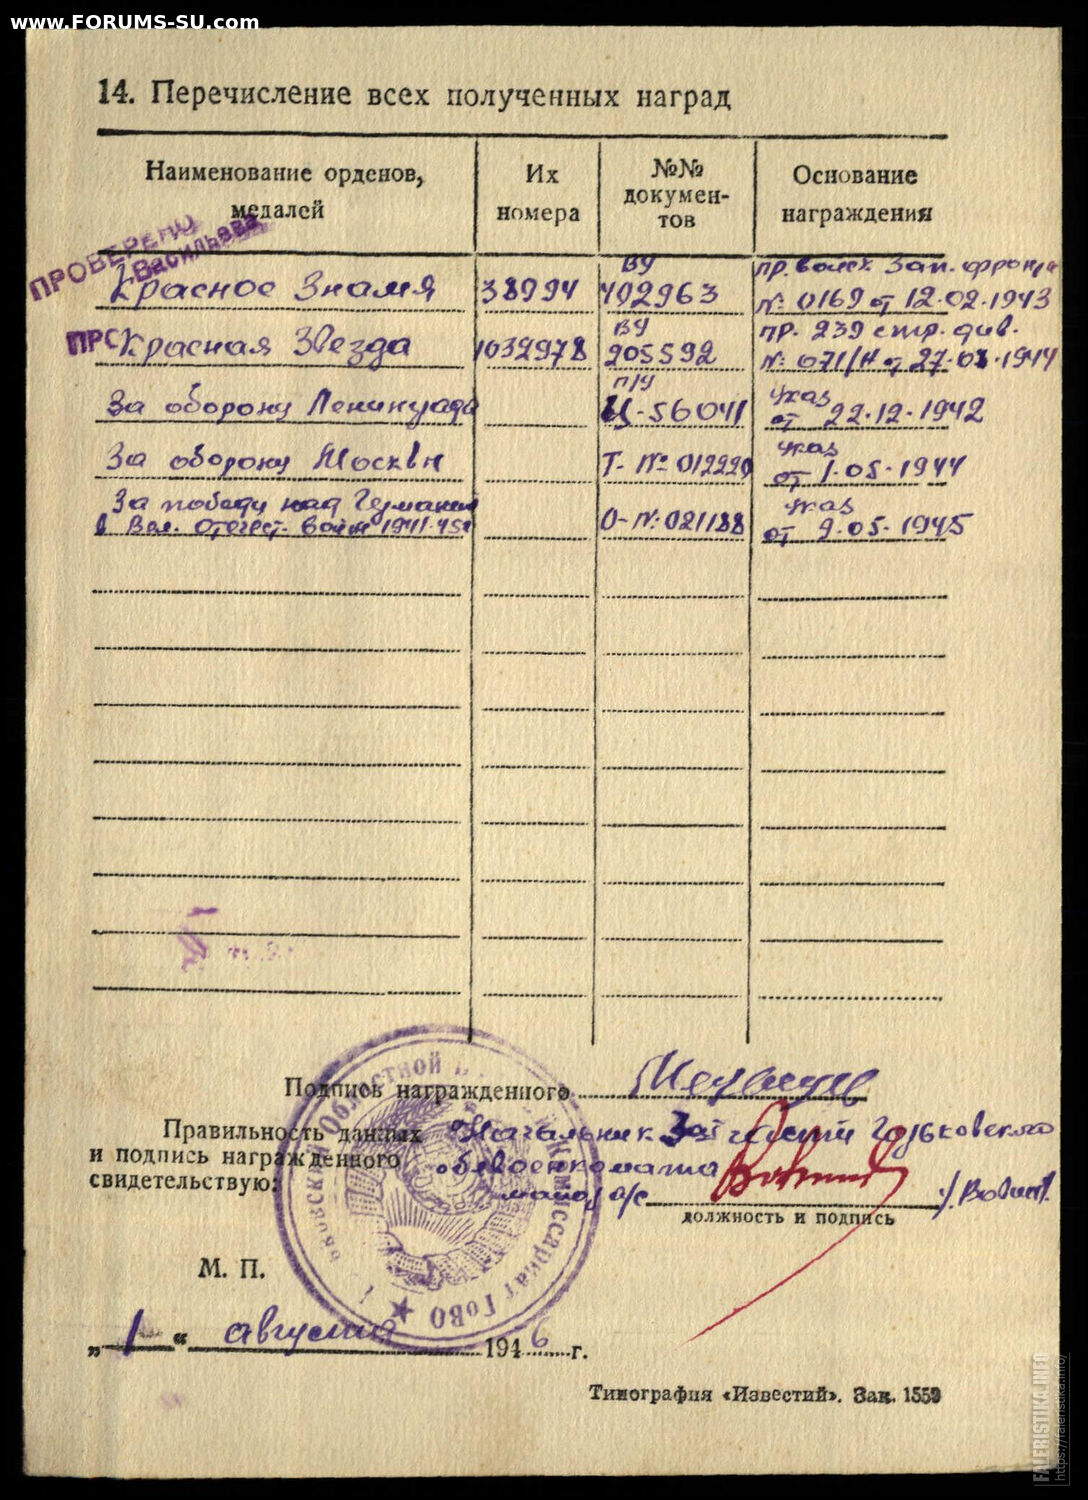 www.FORUMS-SU.com
14. Перечисление всех полученных наград
Наименование орденов, медалей
Их номера
№№ документов
Основание награждения
ПРОВЕРЕНО
Васильева
Красное Знамя 38994 ВУ 492963 пр. войск Зап. фронта № 0169 от 12.02.1943
Красная Звезда 1032978 ВУ 905592 пр. 239 стр. див. № 071/н от 27.03.1944
За оборону Ленинграда п/у Ц-56041 Указ от 22.12.1942
За оборону Москвы Т-№ 012220 Указ от 1.05.1944
За победу над Германией О-№ 021188 Указ от 9.05.1945
в Вел. Отечест. войне 1941-45г
Подпись награжденного
Правильность данных
и подпись награжденного
свидетельствую:
Начальник 3ей части Горьковского
облвоенкомата
майор а/с
должность и подпись
М. П.
„ 1 “ августа 1946 г.
Типография «Известий». Зак. 1559
FALERISTIKA.INFO
https://faleristika.info/